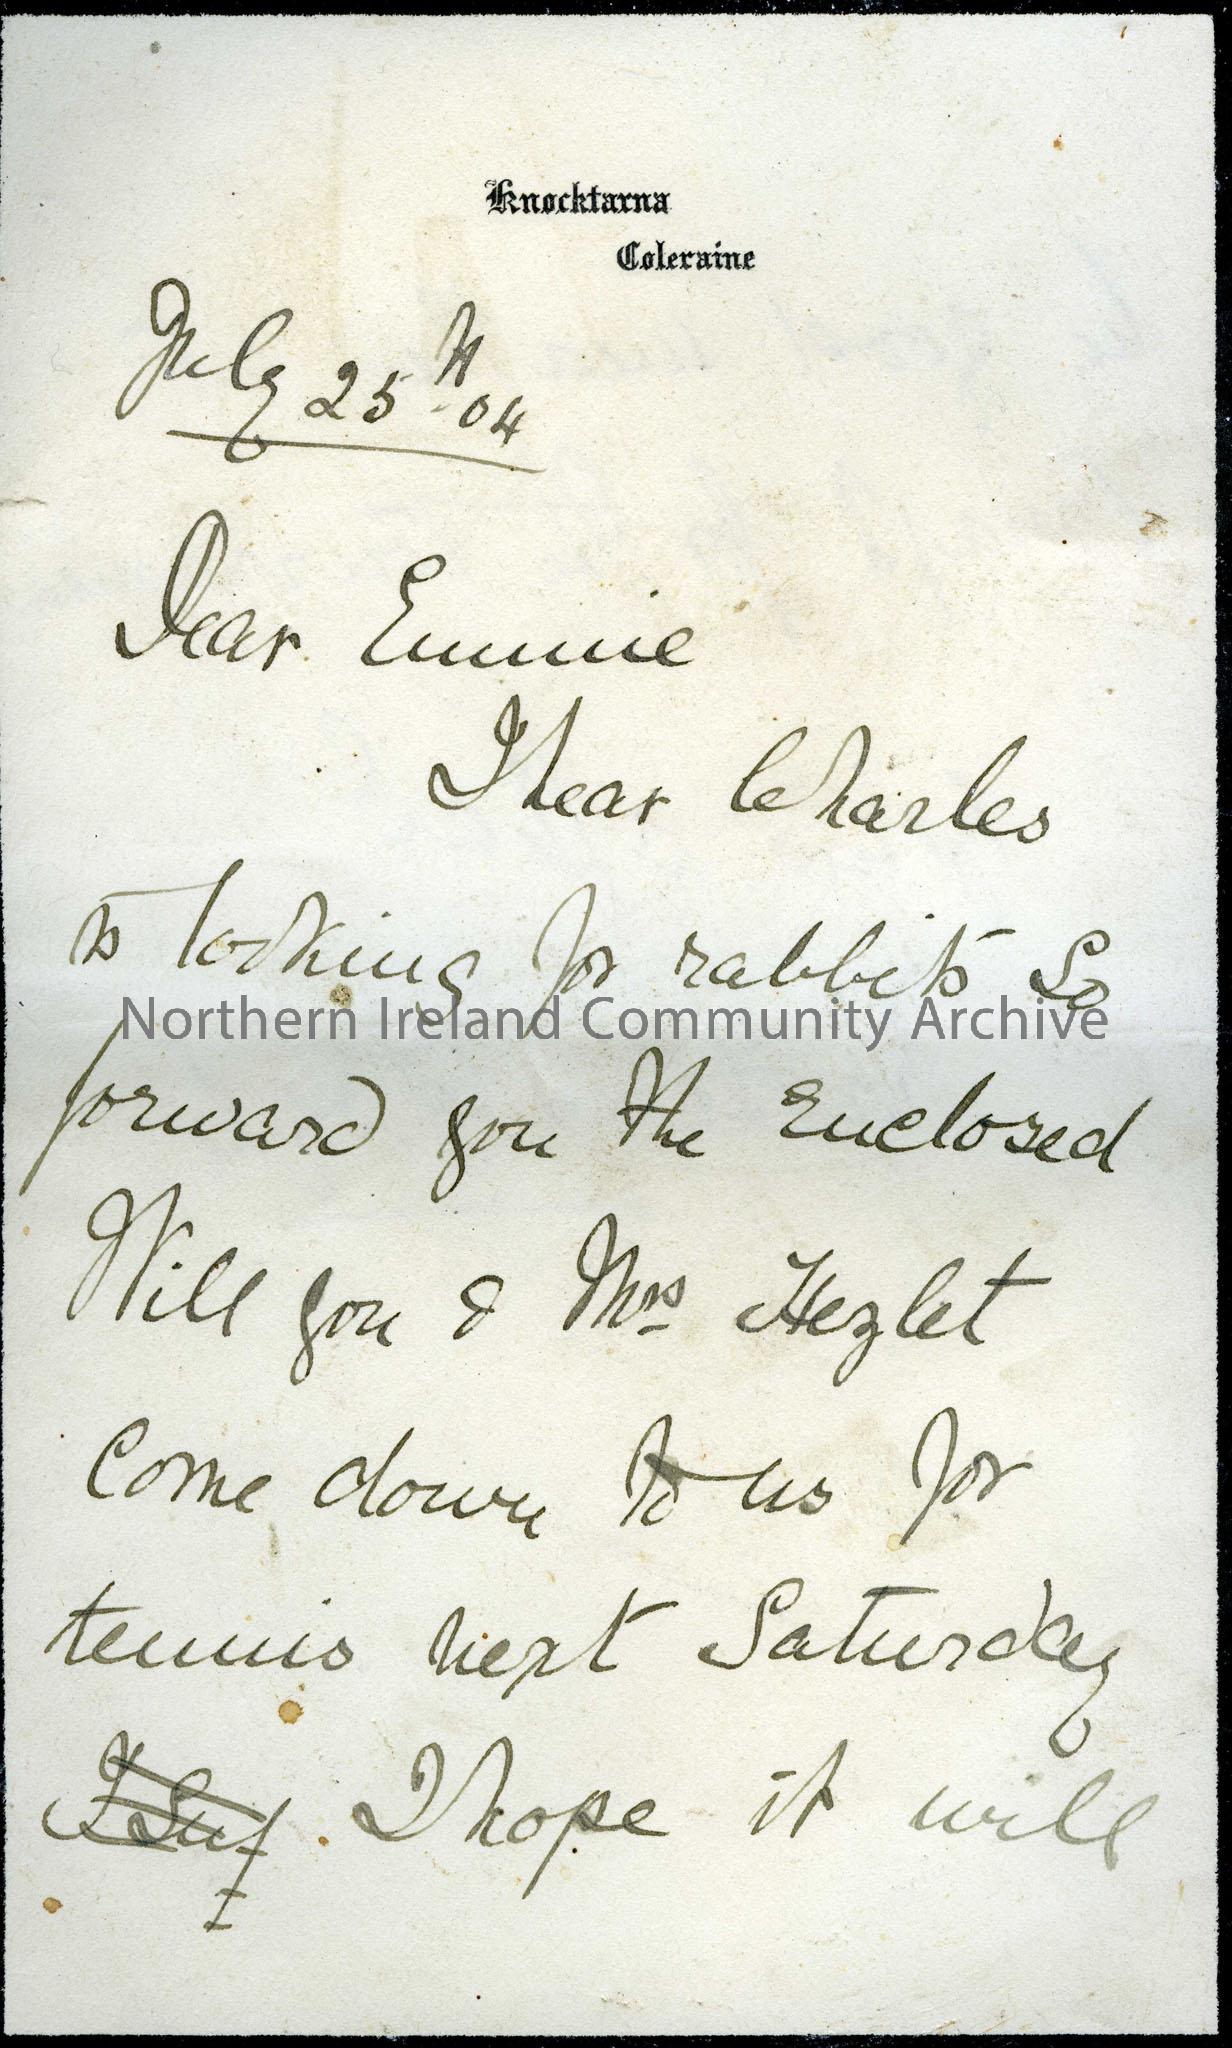 Knocktarna
Coleraine
July 25th 04
Dear Emmie
I hear Charles
is looking for rabbits So
Northern Ireland Community Archive
forward you the Enclosed
Will you & Mrs Hezlet
Come down to us for
tennis next Saturday
I hope it will